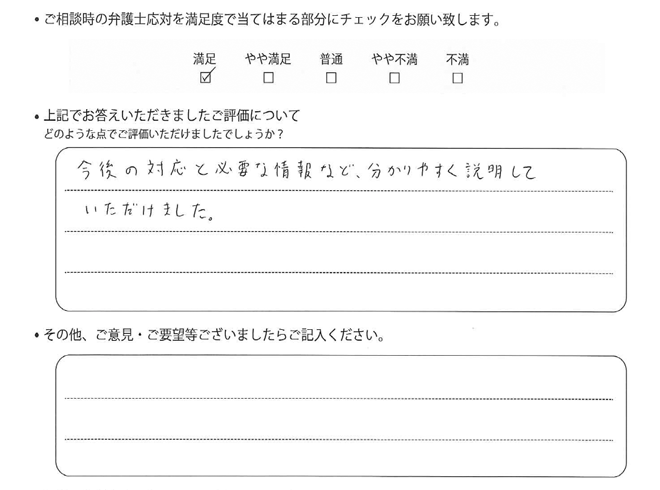 • ご相談時の弁護士応対を満足度で当てはまる部分にチェックをお願い致します。
満足 やや満足 普通 やや不満 不満
☑ ☐ ☐ ☐ ☐
• 上記でお答えいただきましたご評価について
どのような点でご評価いただけましたでしょうか？
今後の対応と必要な情報など、分かりやすく説明して
いただけました。
• その他、ご意見・ご要望等ございましたらご記入ください。